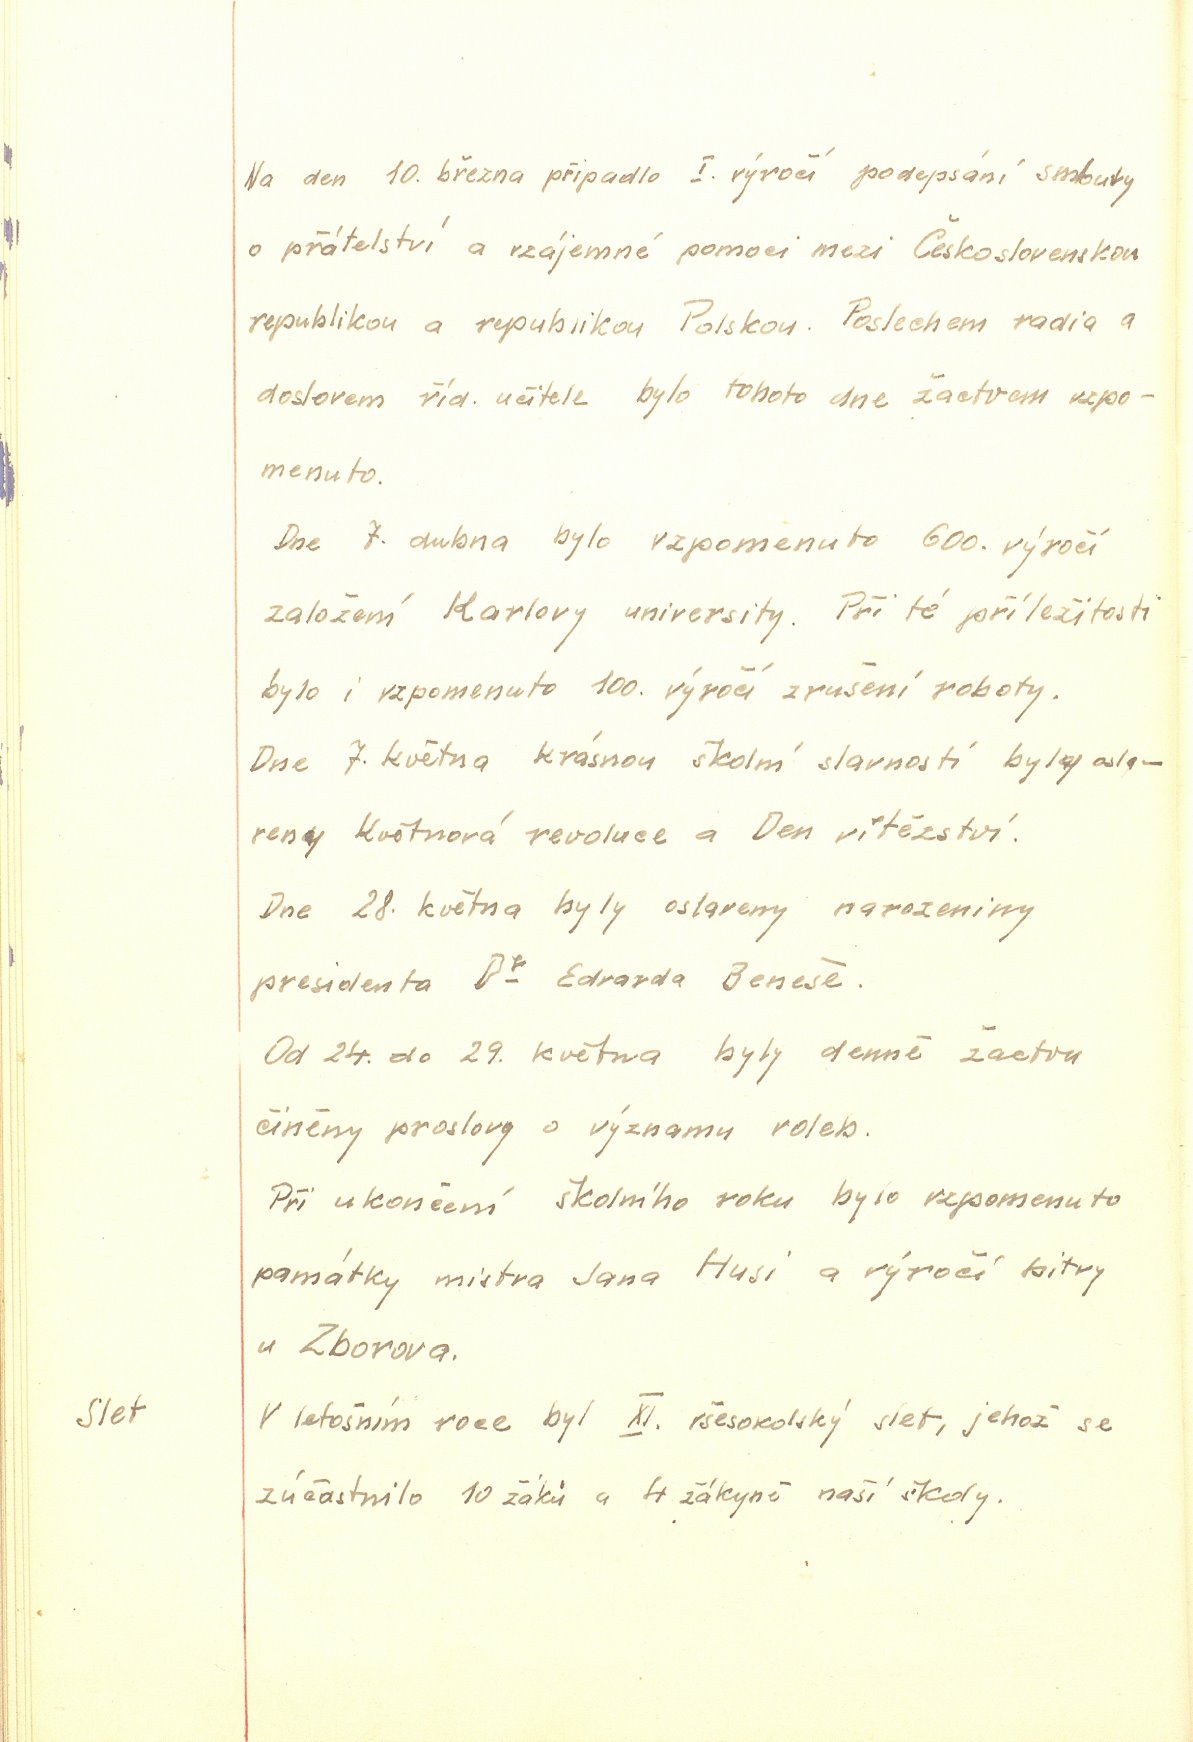 Na den 10. března připadlo I. výročí podepsání smlouvy
o přátelství a vzájemné pomoci mezi Československou
republikou a republikou Polskou. Poslechem radia a
doslovem říd. učitele bylo tohoto dne žactvem vzpo-
menuto.
Dne 7. dubna bylo vzpomenuto 600. výročí
založení Karlovy university. Při té příležitosti
bylo i vzpomenuto 100. výročí zrušení roboty.
Dne 7. května krásnou školní slavností byly osla-
veny Květnová revoluce a Den vítězství.
Dne 28. května byly oslaveny narozeniny
presidenta Dr Edvarda Beneše.
Od 24. do 29. května byly denně žactvu
činěny proslovy o významu voleb.
Při ukončení školního roku bylo vzpomenuto
památky mistra Jana Husi a výročí bitvy
u Zborova.
Slet V letošním roce byl XI. všesokolský slet, jehož se
zúčastnilo 10 žáků a 4 žákyně naší školy.